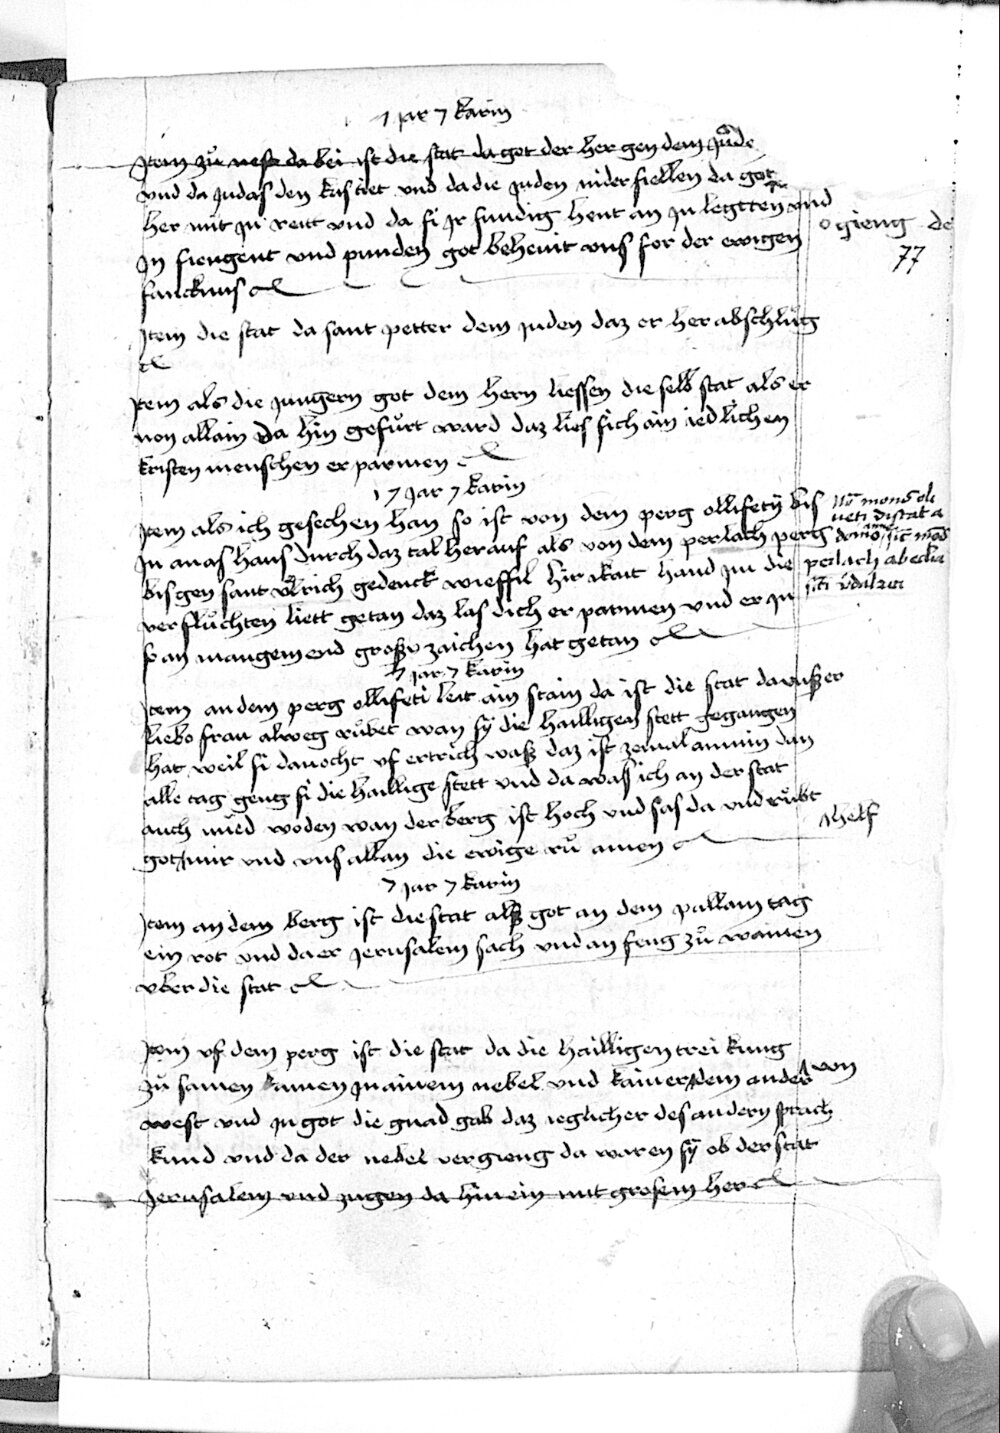 1 jar 7 karin
Jtem zů nest da bei ist die stat da got der her gen dem Jude
vnd da Judas den kust tet vnd da die Juden nider fiellen da got
her mit Jn rett vnd da si Jr sundig hent an Jn legtten vnd
o gieng de
77
Jn fiengent vnd punden got behenit vns for der ewigen
fancknus
Jtem die stat da sant petter dem Juden daz or her abschlůg
Jtem als die Jungern got dem hern liessen die selb stat als er
von allain da hin gefůrt ward daz lies sich ain iedlichen
kristen menschen er parmen
1 7 Jar 7 karin
Jtem als ich gesechen han so ist von dem perg ollifety bis
Jn anas haus durch daz tal herauf als von dem perlach perg
bis gen sant vlrich gedenck wieffil hir akait hand Jm die
verflůchten liett getan daz las dich er parmen vnd er Jn
so an mangem end grosse zaichen hat getan
No mons oli
ueti distat a
domo sic mod
perlach ab eccla
sti vdalrici
7 jar 7 karin
Jtem an dem perg ollifeti leit ain stain da ist die stat da vnsser
liebe frau alweg růbet wan sy die hailligen stett gegangen
hat weil si danocht vf ertrich wass daz ist zemal anmin dan
alle tag geng si die haillige stett vnd da wass ich an der stat
auch mued woden wan der berg ist hoch vnd sas da vnd růbt
helf
got mir vnd vns allan die ewige rů amen
7 jar 7 karin
Jtem an dem berg ist die stat alss got an dem pallam tag
ein rot vnd da er Jerusalem sach vnd an feng zů wainen
vber die stat
Jtem vf dem perg ist die stat da die hailligen trei kung
zů samen kamen Jn ainem nebel vnd kainer dem ander von
west vnd Jn got die gnad gab daz ieglicher des andern sprach
kund vnd da der nebel vergieng da waren sy ob der stat
Jerusalem vnd zugen da hin ein mit grosem her